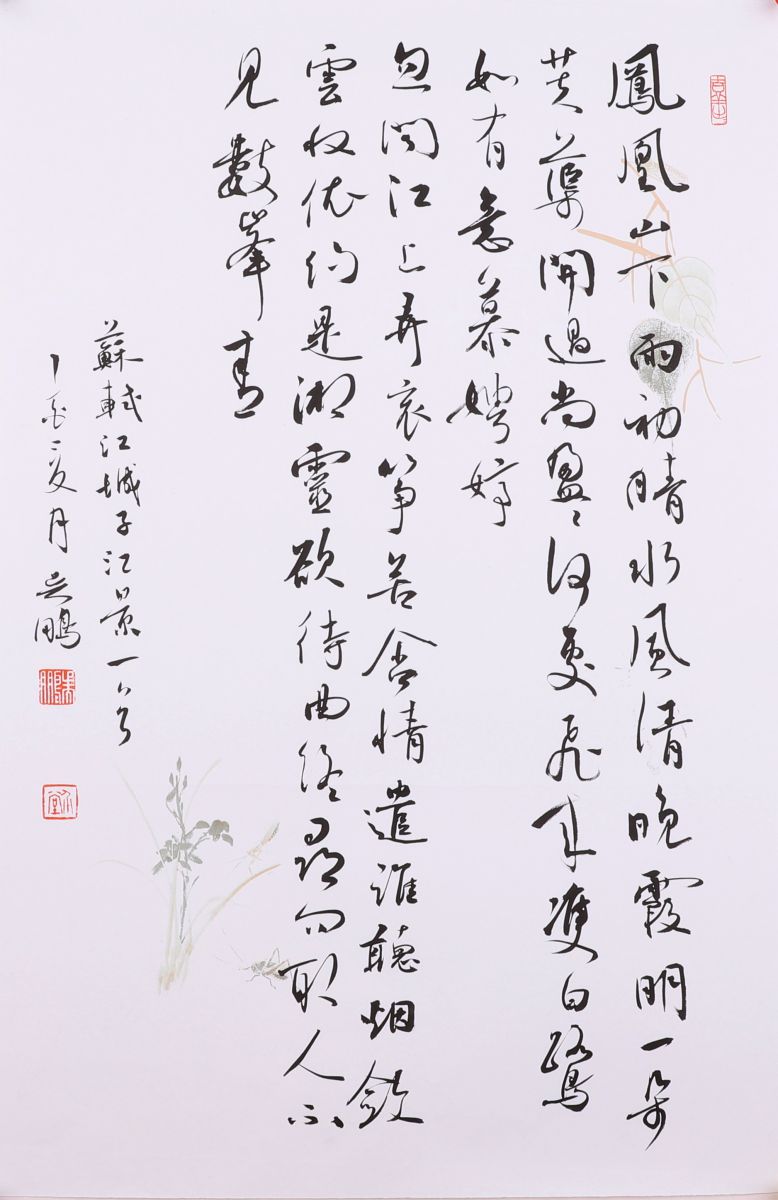 鳳凰山下雨初晴水風清晚霞明一朵
芙蕖開過尚盈〻何處飛來雙白鷺
如有意慕娉婷
忽聞江上弄哀筝苦含情遣誰聽烟斂
雲收依約是湘靈欲待曲終尋問取人不
見數峯青
蘇軾江城子江景一首
丁酉夏月吴鵬
吴鵬